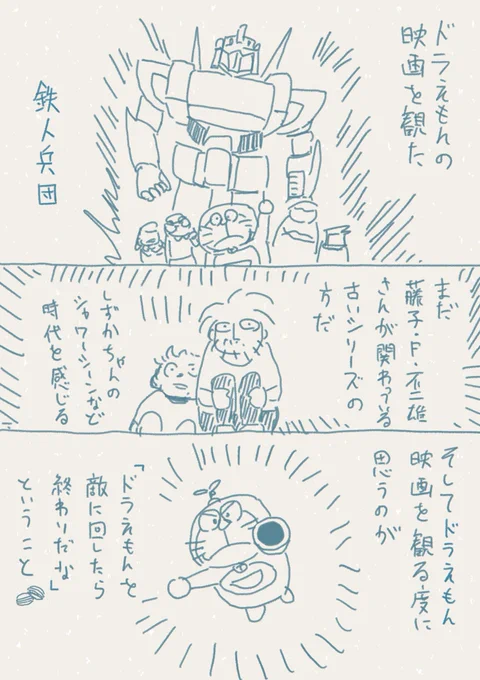 ドラえもんの
映画を観た
鉄人兵団
まだ
藤子・F・不二雄
さんが関わってる
古いシリーズの
方だ
しずかちゃんの
シャワーシーンなど
時代を感じる
そしてドラえもん
映画を観る度に
思うのが
「ドラえもんを
敵に回したら
終わりだな」
ということ